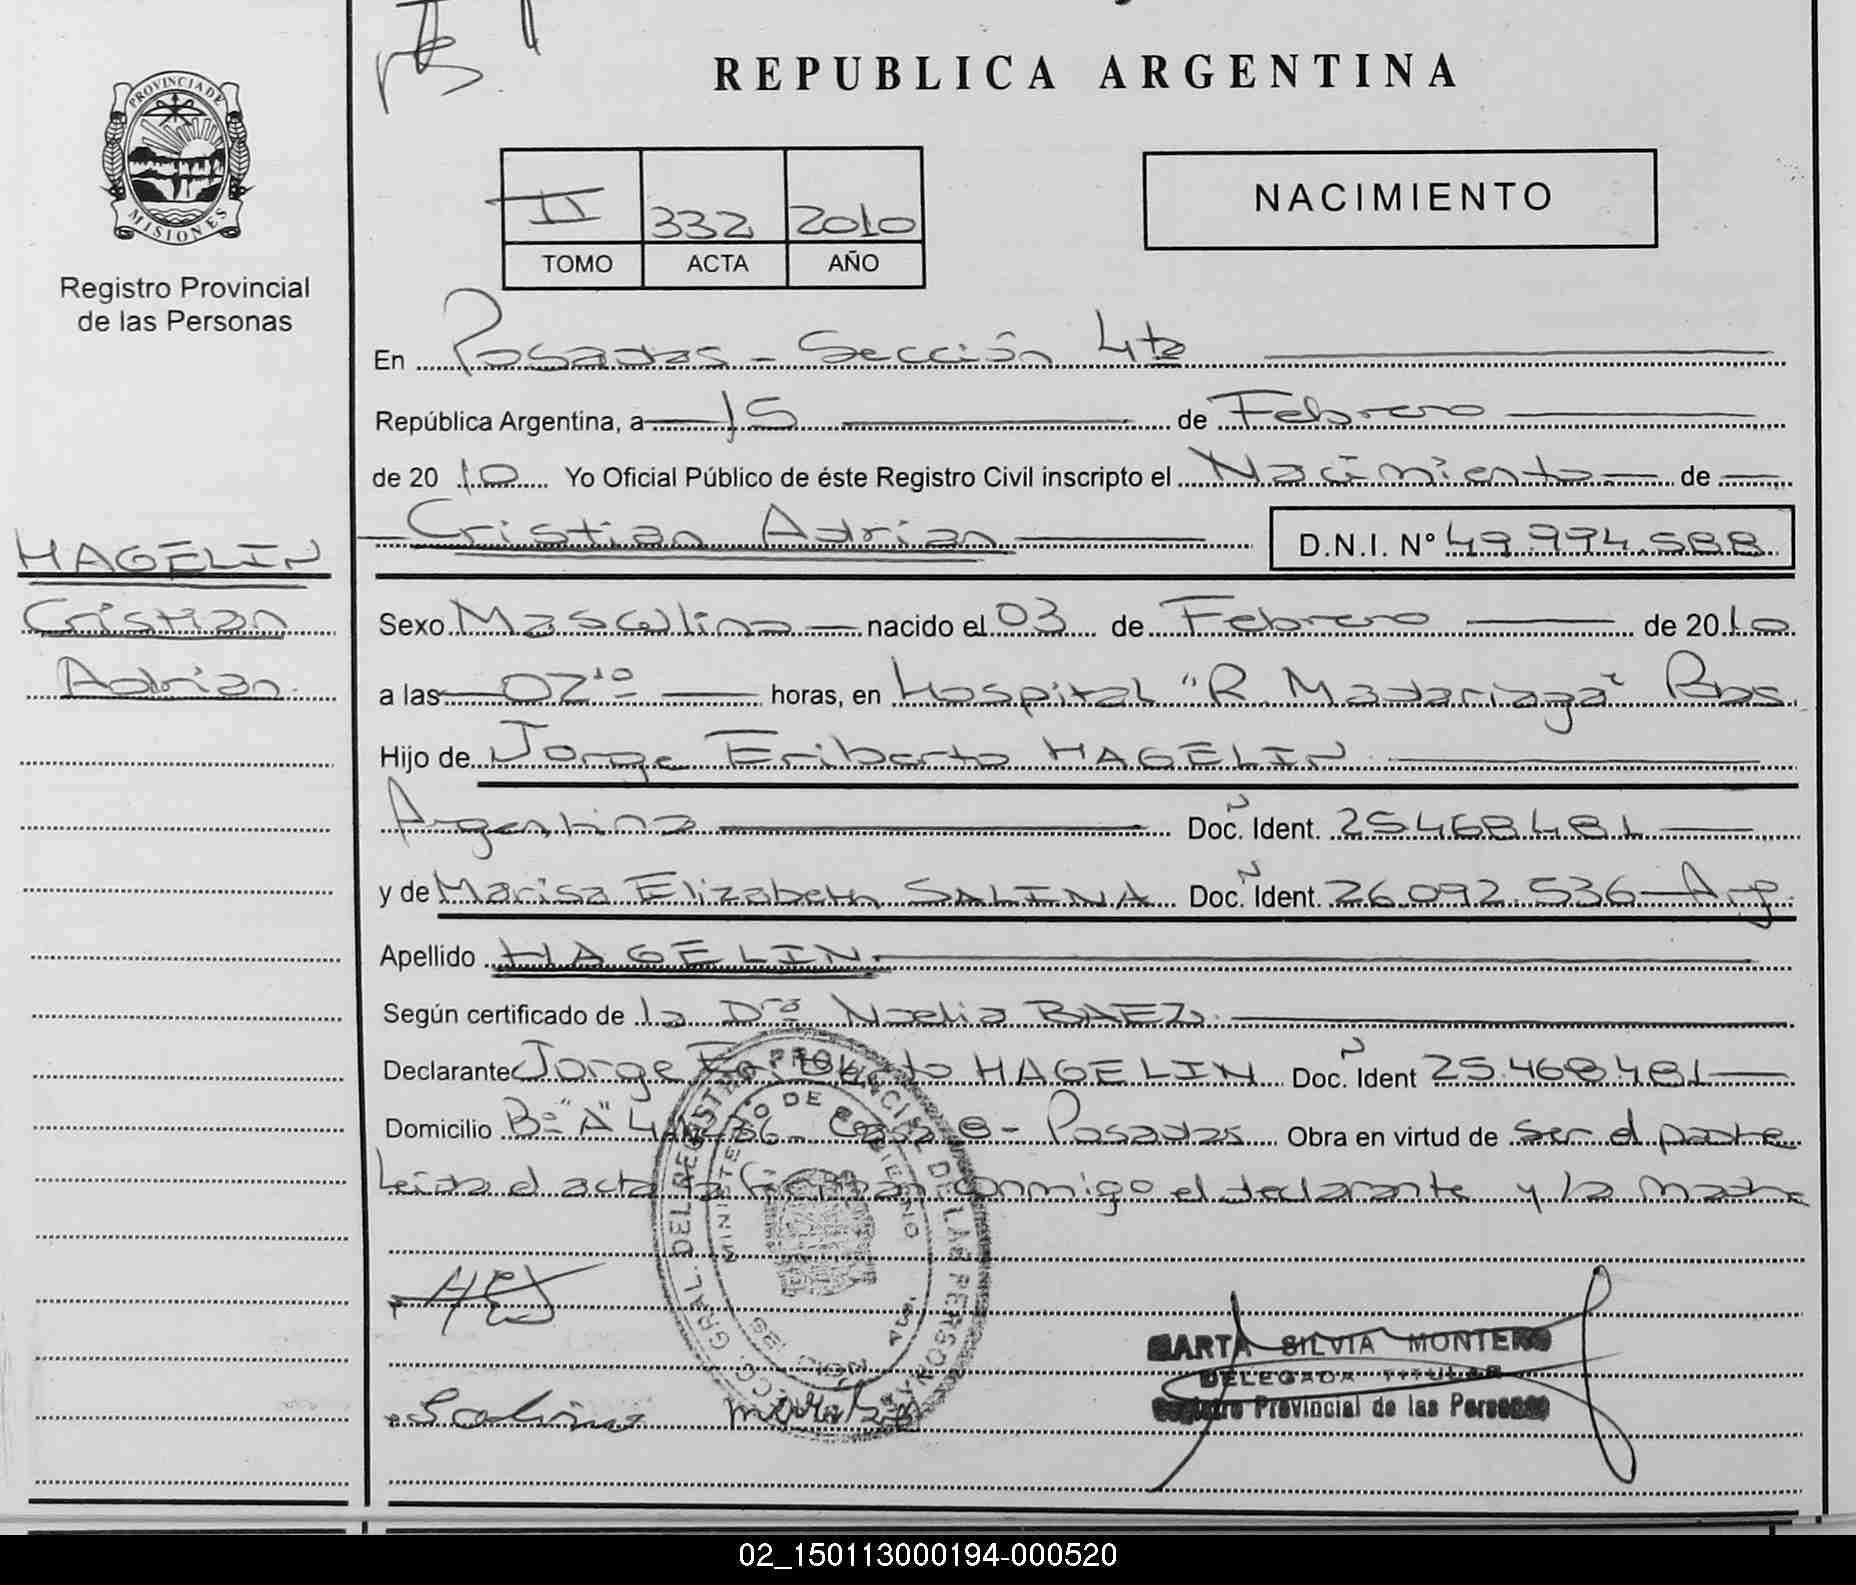 REPUBLICA ARGENTINA
PROVINCIA DE MISIONES
Registro Provincial
de las Personas
II 332 2010
TOMO ACTA AÑO
NACIMIENTO
En Posadas - Sección 4ta
República Argentina, a 15 de Febrero
de 2010 Yo Oficial Público de éste Registro Civil inscripto el Nacimiento de
Cristian Adrian D.N.I. Nº 49.994.588
HAGELIN
Cristian
Adrian.
Sexo Masculino nacido el 03 de Febrero de 2010
a las 0710 horas, en Hospital "R. Madariaga" Pdas.
Hijo de Jorge Eriberto HAGELIN
Argentina Doc. Ident. 25.468.481
y de Marisa Elizabeth SALINA Doc. Ident. 26.092.536 - Arg.
Apellido HAGELIN.
Según certificado de la Dra Noelia BAEZ.
Declarante Jorge Eriberto HAGELIN Doc. Ident 25.468.481
Domicilio Bº "A" 4 - Casa 8 - Posadas Obra en virtud de ser el padre
Leida el acta la firman conmigo el declarante y la madre
MARTA SILVIA MONTERO
DELEGADA TITULAR
Registro Provincial de las Personas
Salina
02_150113000194-000520